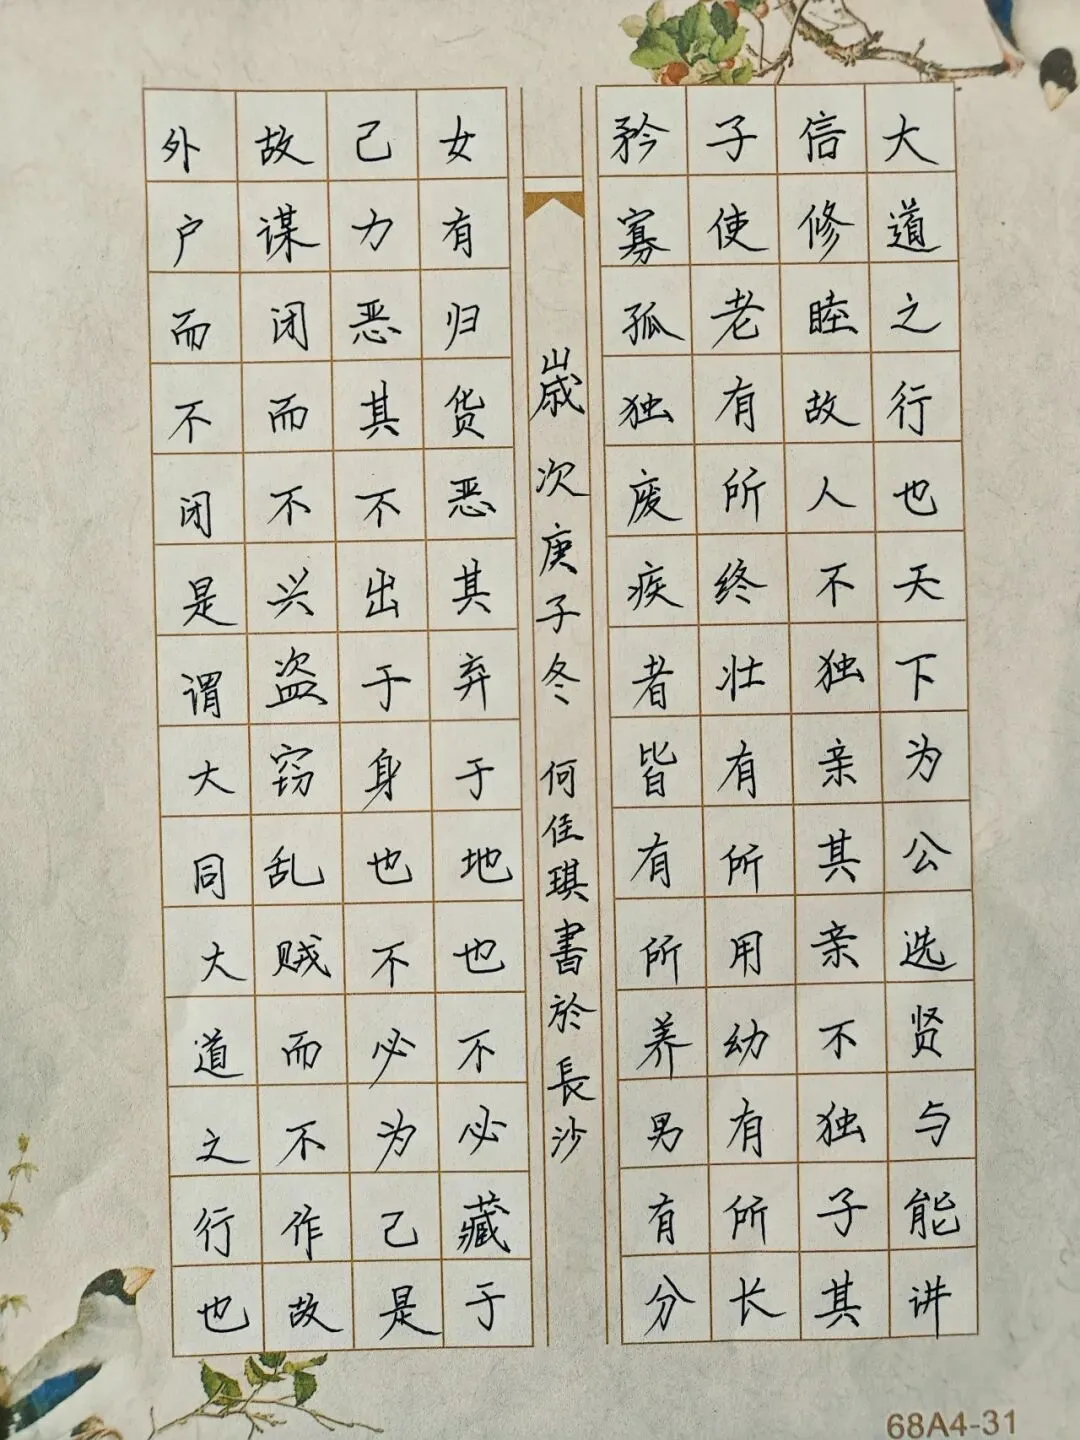 大道之行也天下为公选贤与能讲
信修睦故人不独亲其亲不独子其
子使老有所终壮有所用幼有所长
矜寡孤独废疾者皆有所养男有分
歲次庚子冬 何佳琪書於長沙
女有归货恶其弃于地也不必藏于
己力恶其不出于身也不必为己是
故谋闭而不兴盗窃乱贼而不作故
外户而不闭是谓大同大道之行也
68A4-31